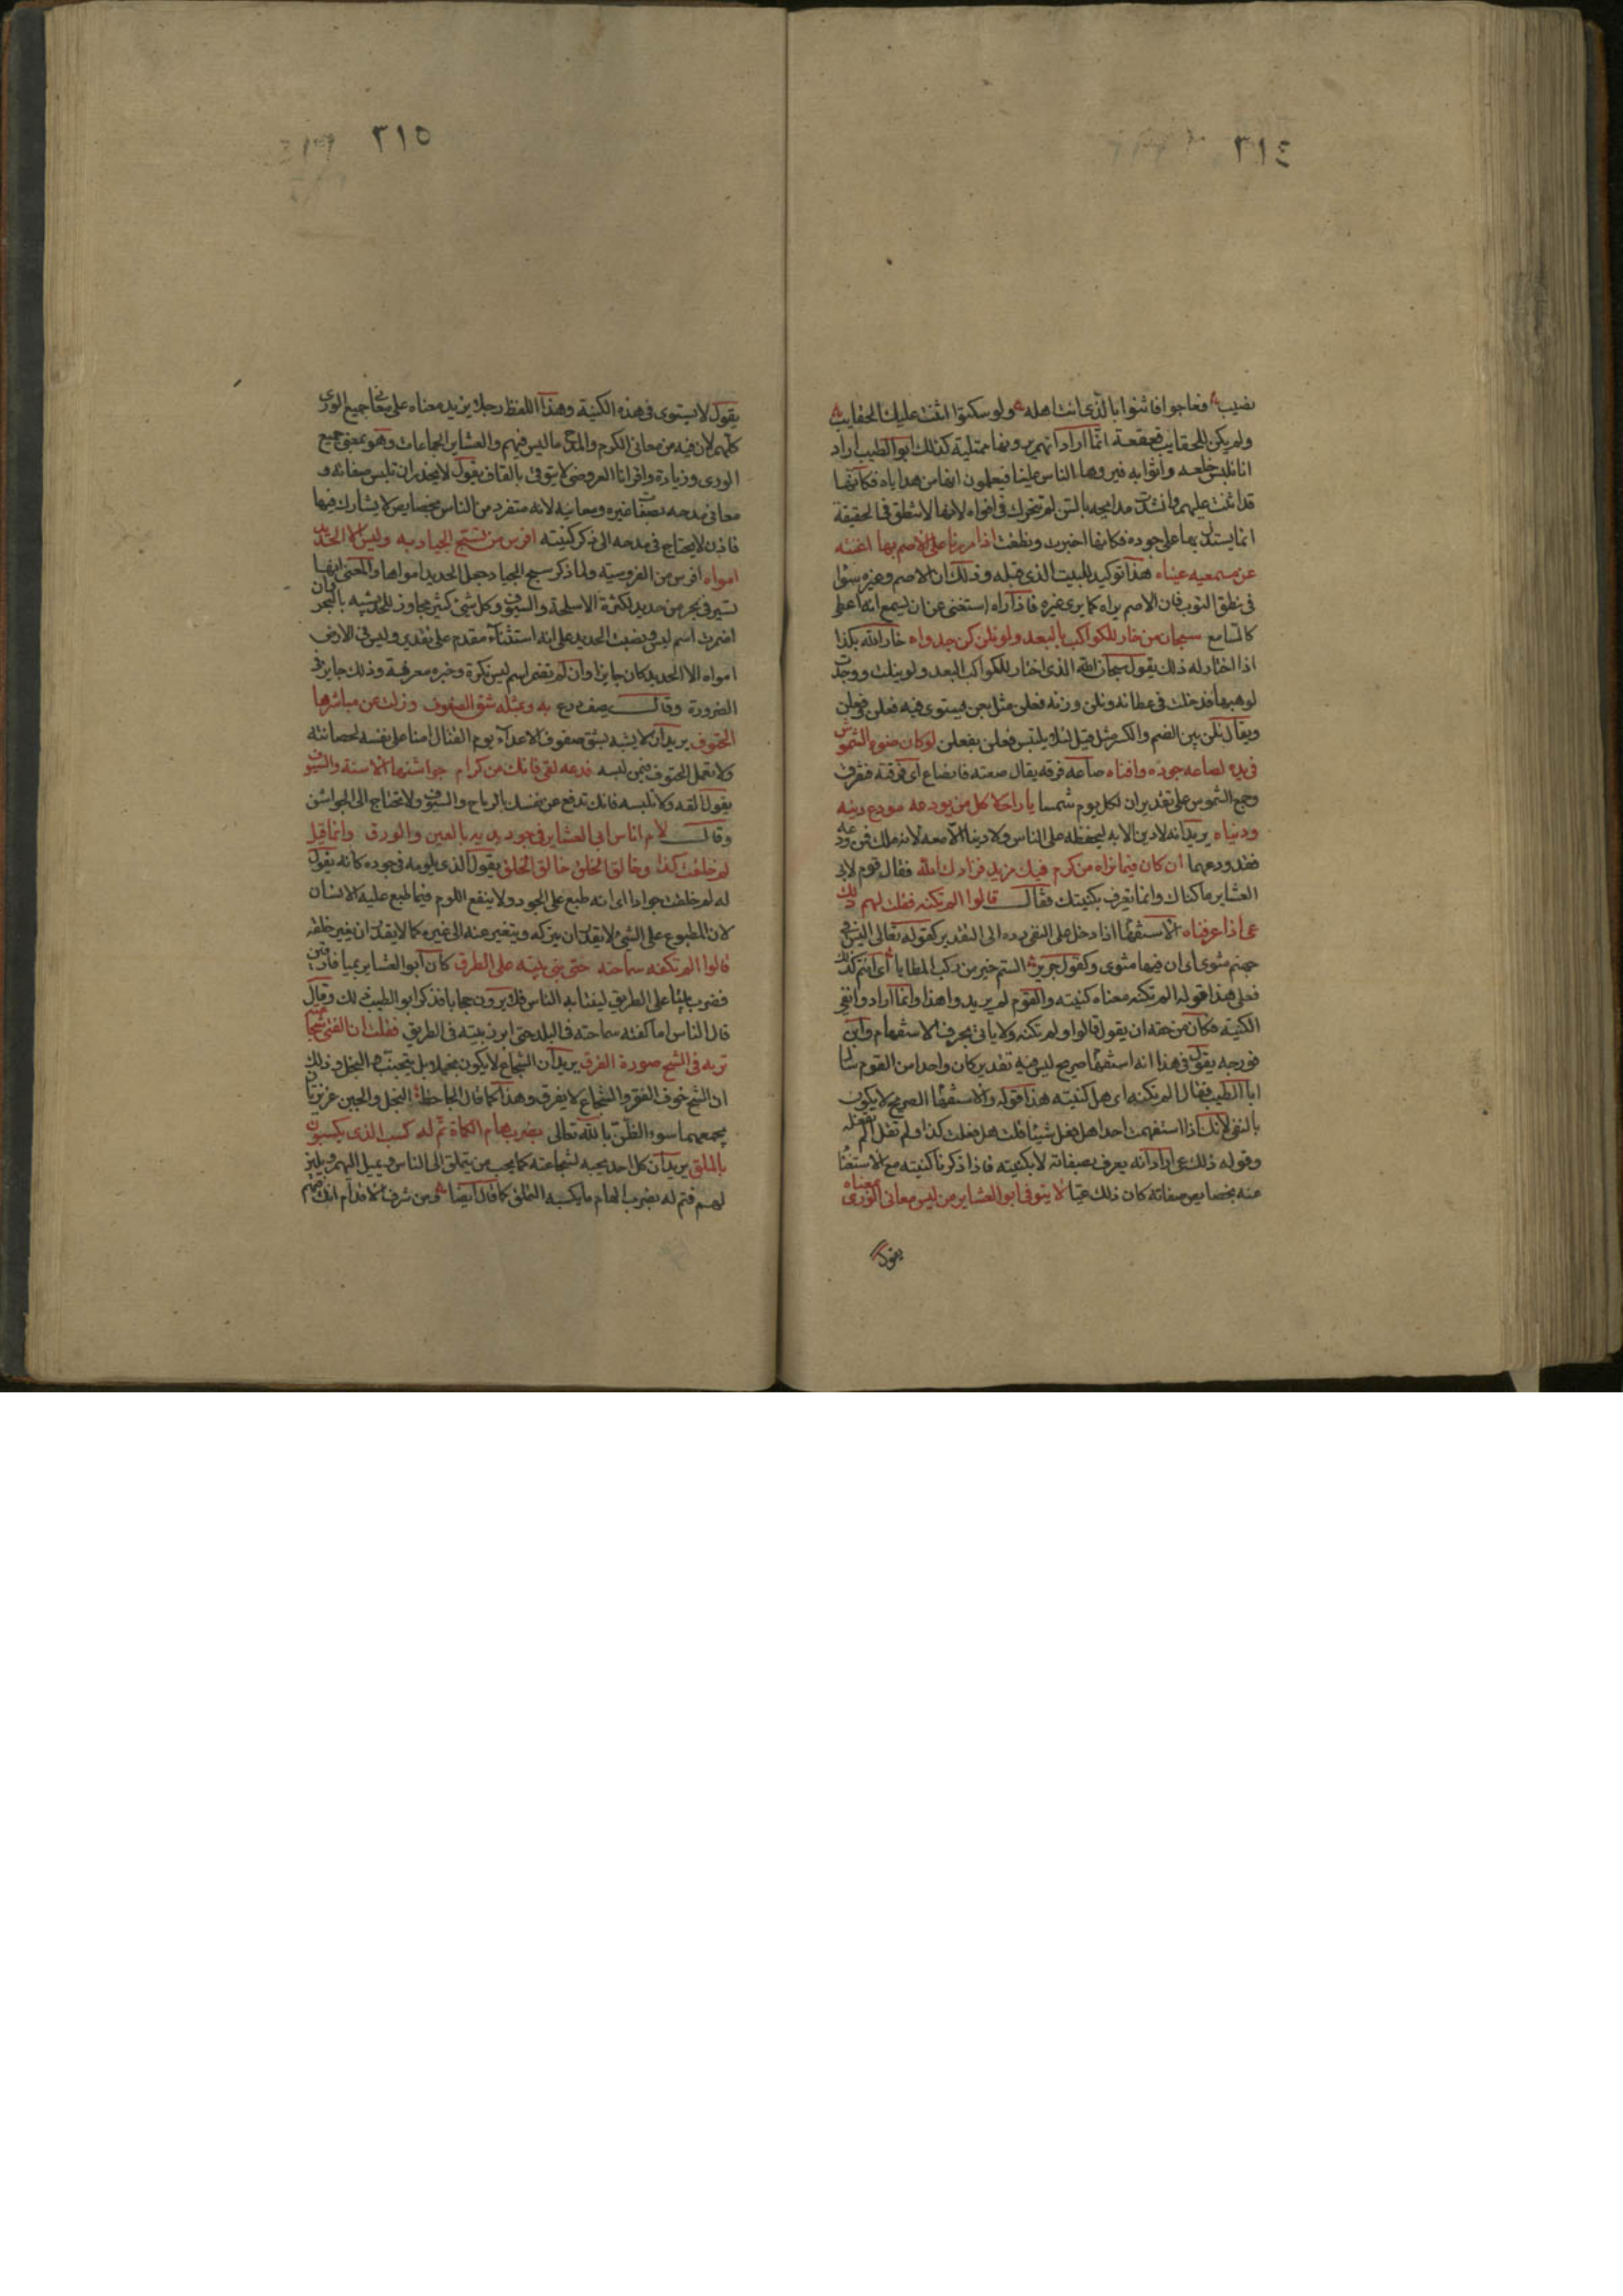 ٣١٤
نصيب فعاجوا فاثنوا بالذي انت اهله ولو سكتوا اثنت عليك الحقايب
ولم يكن للحقايب قعقعة انما اراد انهم يرونها ممتلية كذلك ابو الطيب اراد
انا نلبس خلعه واثوابه فيروها الناس علينا فيعلمون انها من هداياه فكانها
قد اثنت عليهم وانشدت مدايحه بالسن لم تتحرك في افواه لانها لا تنطق في الحقيقة
انما يستدل بها على جوده فكانها اخبرت ونطقت اذا مررنا على الاصم بها اغنته
عن مسمعيه عيناه هذا توكيد للبيت الذي قبله وذلك ان الاصم وغيره سوا
في نطق الثوب فان الاصم يراه كما يرى غيره فاذا راه استغنى عن ان يسمع انه اعطى
كالسامع سبحان من خار للكواكب بالبعد ولو نلن كن جدواه خار الله بكذا
اذا اختار له ذلك يقول سبحان الله الذي اختار للكواكب البعد ولو نيلت ووجدت
لوهبها فدخلت في عطائه ونلن وزنه فعلن مثل بعن فيستوي فيه فعلن وفعلن
ويقال نلن بين الضم والكسر مثل قيل لئلا يلتبس فعلن بفعلن لو كان ضوء الشموس
في يده لصاعه جوده وافناه صاعه فرقه يقال صعته فانصاع اي فرقته فتفرق
وجمع الشموس على تقدير ان لكل يوم شمسا يا راحلا كل من يودعه مودع دينه
ودنياه يريد انه لا دين الا به ليحفظه على الناس ولا دنيا الا معه لانه ملك فمن ودعه
فقد ودعهما ان كان فيما نراه من كرم فيك مزيد فزادك الله فقال قوم لابي
العشاير ما كناك وانما تعرف بكنيتك فقال قالوا الم تكنه فقلت لهم ذلك
عي اذا عرفناه الاستفهام اذا دخل على النفي رده الى التقدير كقوله تعالى اليس في
جهنم مثوى اي ان فيها مثوى وكقول جرير الستم خير من ركب المطايا اي انتم كذلك
فعلى هذا قوله الم تكنه معناه كنيته والقوم لم يريدوا هذا وانما ارادوا نفي
الكنية فكان من حقه ان يقول قالوا ولم تكنه ولا ياتي بحرف الاستفهام وابن
فورجه يقول في هذا انه استفهام صريح ليس فيه تقدير كان واحدا من القوم سال
ابا الطيب فقال الم تكنه اي هل كنيته هذا قوله والاستفهام الصريح لا يكون
بالنفي لانك اذا استفهمت احدا هل فعل شيئا قلت هل فعلت كذا ولم تقل الم تفعله
وقوله ذلك عي اراد انه يعرف بصفاته لا بكنيته فاذا ذكرنا كنيته مع الاستغنا
عنه بخصايص صفاته كان ذلك عيا لا يتوفى ابو العشاير من ليس معاني الورى بمعناه
يقول
٣١٥
يقول لا يستوي في هذه الكنية وهذا اللفظ رجل يزيد معناه على معاني جميع الورى
كلهم لان فيه من معاني الكرم والمدح ما ليس فيهم والعشاير الجماعات وهو بمعنى جميع
الورى وزيادة واقرانا العروضي لا يتوقى بالقاف يقول لا يحذر ان تلبس صفاته و
معاني مدحه بصفات غيره ومعانيه لانه متفرد من الناس بخصايص لا يشارك فيها
فاذن لا يحتاج في مدحه الى ذكر كنيته افرس من تسبح الجياد به وليس الا الحديد
امواه افرس من الفروسية ولما ذكر سبح الجياد جعل الحديد امواها والمعنى انها
تسير في بحر من حديد لكثرة الاسلحة والسيوف وكل شيء كثير مجاوز للحد يشبه بالبحر وان
اضمرت اسم ليس ونصبت الحديد على انه استثناء مقدم على تقدير وليس في الارض
امواه الا الحديد كان جايزا وان لم تضمر اسم ليس نكرة وخبره معرفة وذلك جايز في
الضرورة وقال يصف درع به وبمثله شق الصفوف وزلت عن مباشرها
الحتوف يريد ان لابسه يشق صفوف الاعداء يوم القتال امنا على نفسه لحصانته
ولا تعمل الحتوف فيمن لبسه فدعه لقى فانك من كرام جواشنها الاسنة والسيوف
يقول القه ولا تلبسه فانك تدفع عن نفسك بالرماح والسيوف ولا تحتاج الى الجواشن
وقال لام اناس ابي العشاير في جود يديه بالعين والورق وانما قيل
لم خلقت كذا وخالق الخلق خالق الخلق يقول الذي يلومه في جوده كانه يقول
له لم خلقت جوادا اي انه طبع على الجود ولا ينفع اللوم فيما طبع عليه الانسان
لان المطبوع على الشي لا يقدر ان يتركه ويتغير عنه الى غيره كما لا يقدر ان يغير خلقه
قالوا الم تكفه سماحته حتى بنى بيته على الطرق كان ابو العشاير بميا فارقين
فضرب بيتا على الطريق لينتابه الناس فلا يرون حجابا فذكر ابو الطيب ذلك وقال
قال الناس اما كفته سماحته في البلد حتى ابرز بيته في الطريق فقلت ان الفتى شجاعته
تريه في الشح صورة الفرق يريد ان الشجاع لا يكون بخيلا بل يتجنب البخل وذلك
ان الشح خوف الفقر والشجاع لا يفرق وهذا كما قال الجاحظ البخل والجبن غريزتان
يجمعهما سوء الظن بالله تعالى بضرب هام الكماة تم له كسب الذي يكسبون
بالملق يريد ان كل احد يحبه لشجاعته كما يحب من يتملق الى الناس ويميل اليهم ويلين
لهم فتم له بضرب الهام ما يكسبه التملق كما قال ايضا ومن شرف الاقدام انك فيهم